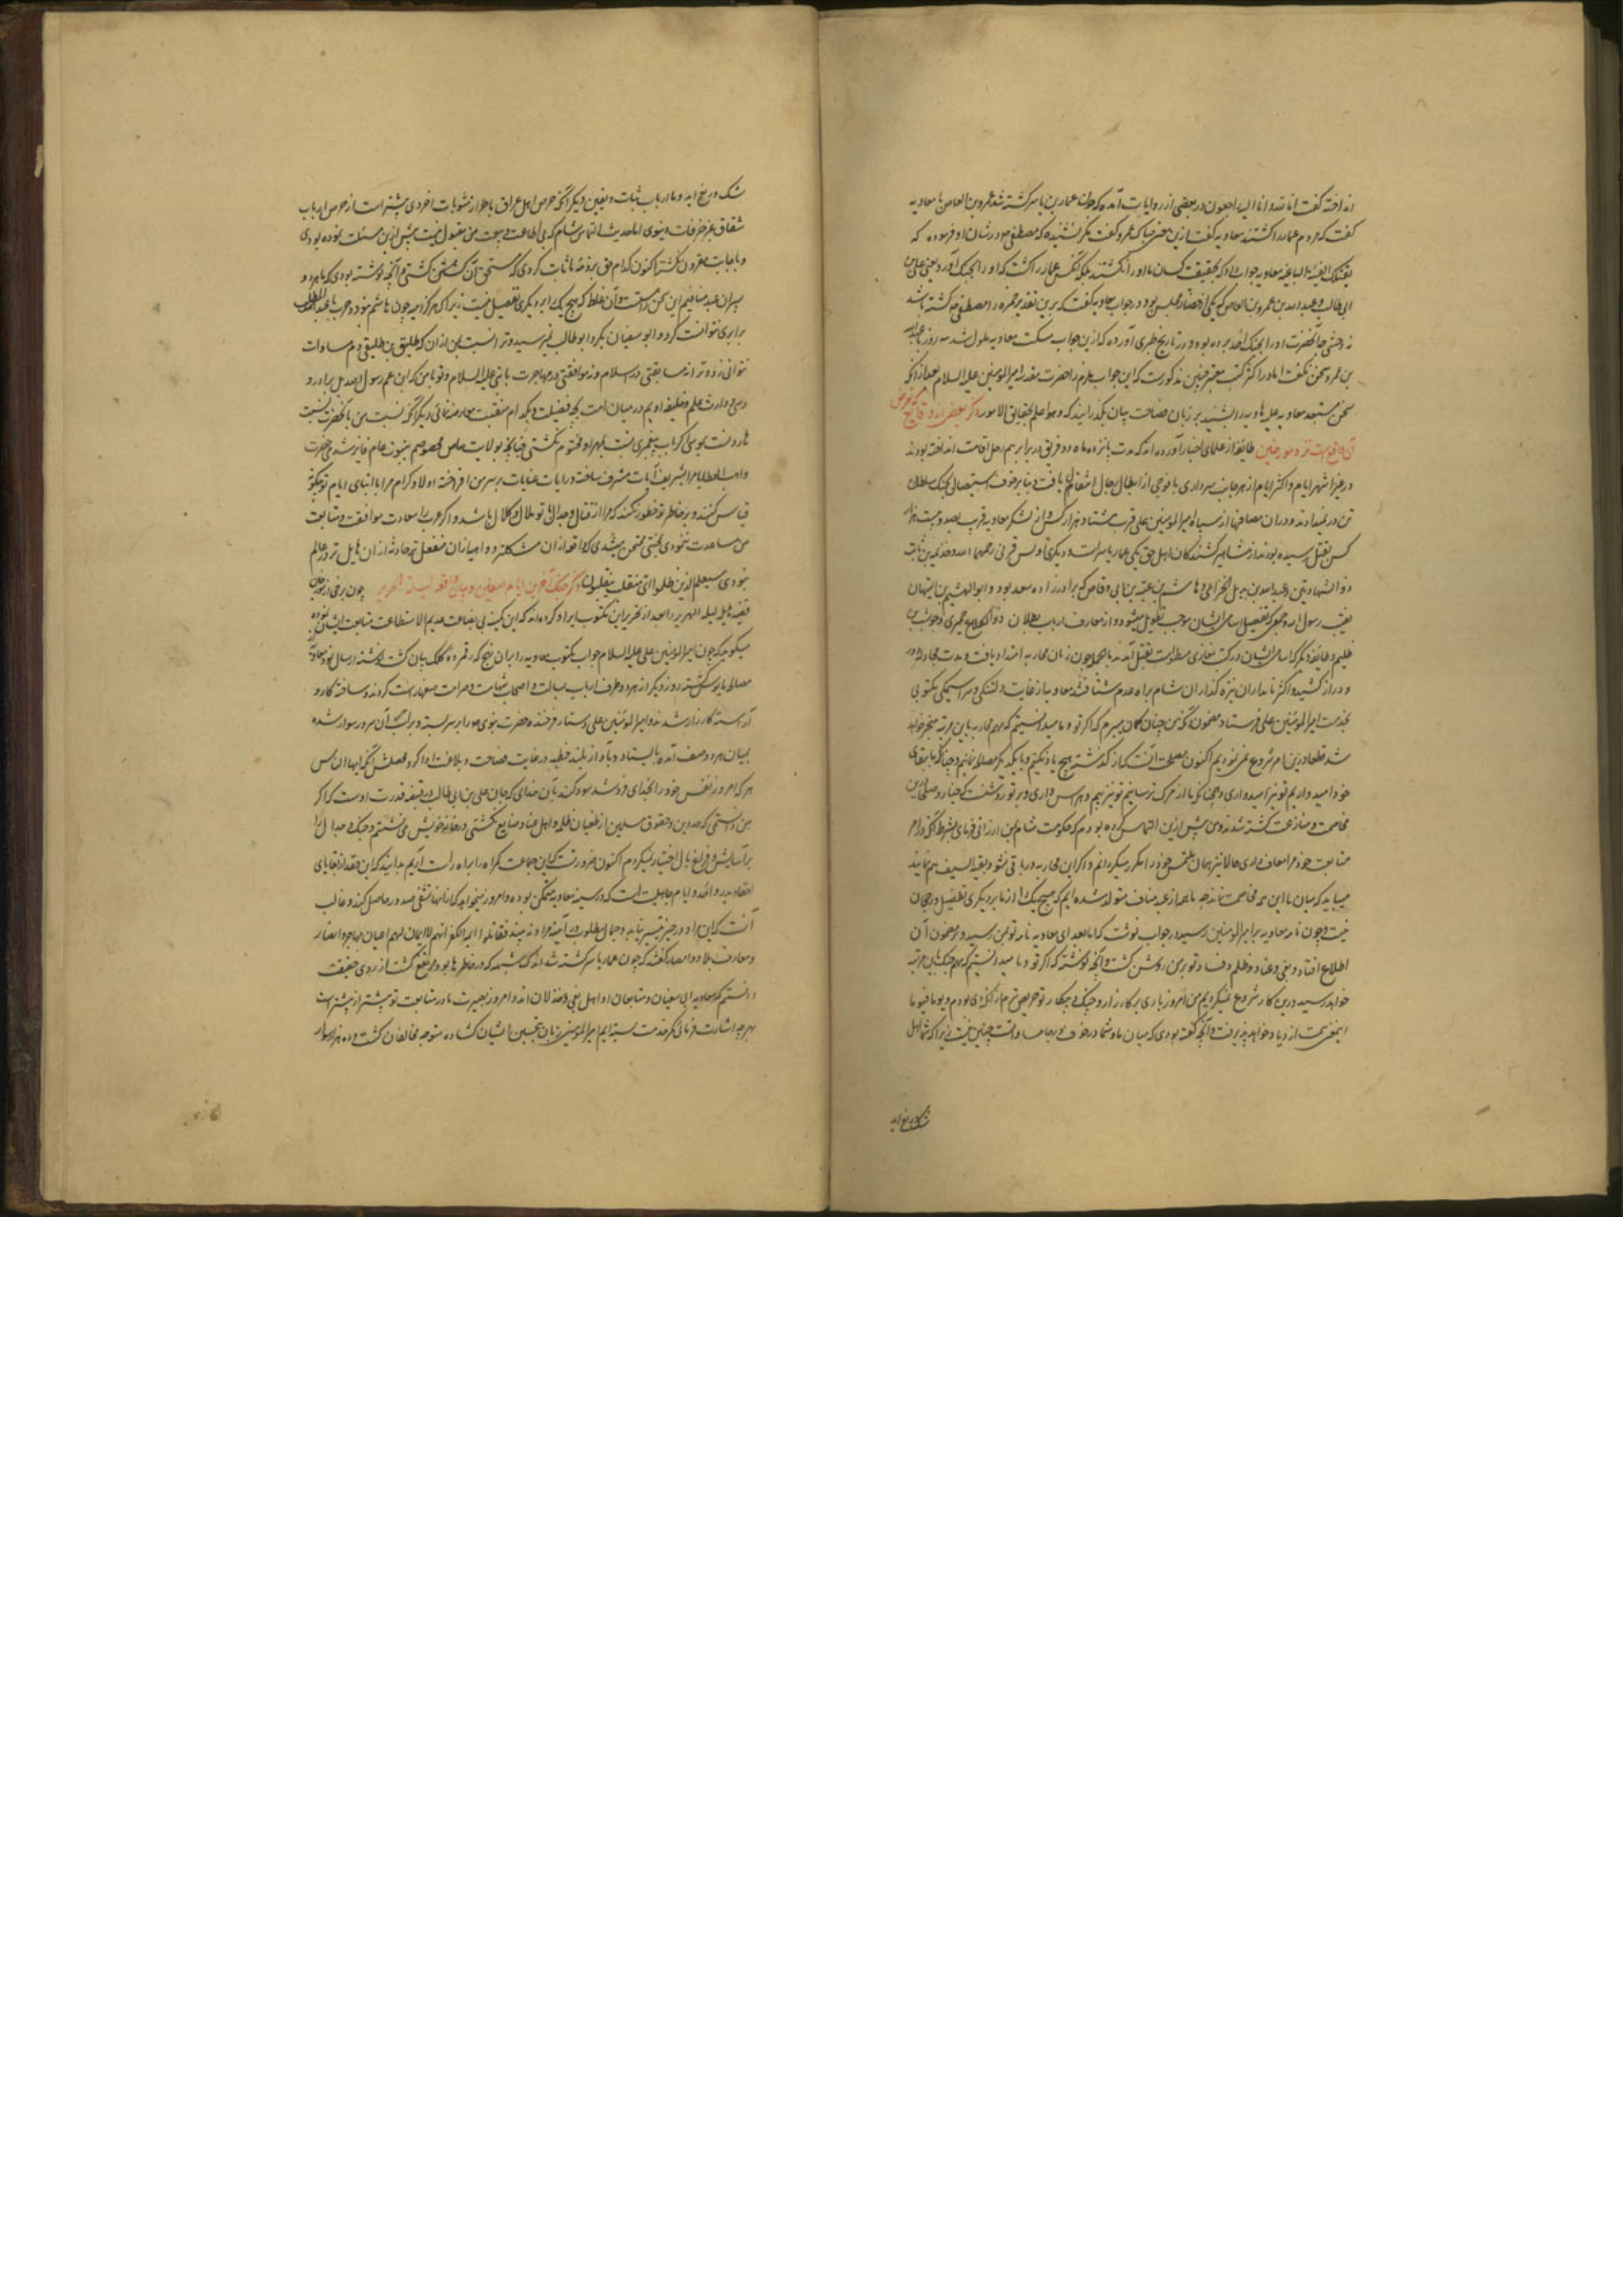 انداخته گفت انا لله و انا الیه راجعون در بعضی از روایات آمده که چون عمار بن یاسر کشته شد عمرو بن العاص با معاویه
گفت که مردم عمار را کشتند معاویه گفت ازین معنی چه باک عمرو گفت مگر نشنیده که مصطفی در شان او فرموده که
تقتلک الفئة الباغیة معاویه جواب داد که بحقیقت کسان ما او را نکشتند بلکه آنکس عمار را کشت که او را بجنک آورد یعنی علی بن
ابی طالب و عبدالله بن عمرو بن العاص که یکی از حضار مجلس بود در جواب معاویه گفت که برین تقدیر حمزه را مصطفی کشته باشد
نه وحشی چه آنحضرت او را بجنک احد برده بود و در تاریخ طبری آورده که ازین جواب مسکت معاویه ملول شد سه روز با عبدالله
بن عمرو سخن نکفت اما در اکثر کتب معتبر چنین مذکورست که این جواب ملزم را حضرت مقدسه امیرالمومنین علیه السلام بعد از آنکه
سخن مستبعد معاویه علیه الهاویه را شنید بر زبان فصاحت بیان بگذرانید که و هو اعلم بحقایق الامور ذکر بعضی از وقایع که
آن واقع است نزد مورخین طایفه از علمای اخبار آورده اند که مدت پانزده ماه دو فریق در برابر هم رحل اقامت انداخته بودند
در غیر اشهر ایام و اکثر ایام از هر جانب سرداری با فوجی از ابطال رجال اشتغال یافت و بنا بر خوف استیصال جنک سلطان
تن در نمیدادند و در ان مصافها از سپاه امیرالمومنین علی قرب هشتاد هزار کس و از لشکر معاویه قریب بصد و بیست هزار
کس بقتل رسیده بودند از مشاهیر کشتگان اهل حق یکی عمار یاسر است و دیگری اویس قرنی رحمهما الله و خزیمة بن ثابت
ذو الشهادتین و عبدالله بن بدیل الخزاعی و هاشم بن عتبه بن ابی وقاص که برادرزاده سعد بود و ابو الهیثم بن التیهان
نقیب رسول الله و جمعی که تفصیل اسامی ایشان موجب تطویل میشود و از معارف ارباب بطلان ذو الکلاع حمیری و حوشب بن
ظلیم و طایفه دیگر که اسامی ایشان در کتب مغازی مسطور است بقتل آمدند بالجمله چون زمان محاربه امتداد یافت و مدت مجادله دور
و دراز کشید و اکثر نامداران نیزه گذاران شام براه عدم شتافتند معاویه از غایت دلتنگی و سراسیمگی مکتوبی
بخدمت امیرالمومنین علی فرستاد مضمون آنکه من چنان گمان میبرم که اگر تو و ما میدانستیم که مهم محاربه باین مرتبه منجر خواهد
شد قطعا درین امر شروع نمی نمودیم اکنون مصلحت آنست که از گذشته هیچ یاد نکنیم و با یکدیگر مصالحه نمائیم و چنانکه ما ببقای
خود امیدواریم تو نیز امیدواری و همچنانکه ما از مرگ ترسانیم تو نیز بیم و هراس داری و بر تو روشنست که خیار و صلحا درین
مخاصمت و منازعت کشته شدند و من پیش ازین التماس کرده بودم که حکومت شام بمن ارزانی فرمای بشرط آنکه از امر
متابعت خود مرا معاف داری حالا نیز همان ملتمس خود را مکرر میگردانم و اگر این محاربه در باقی نشود بقیة السیف هم نمانند
میباید که میان ما این همه مخاصمت نماند چه ما همه از عبد مناف متولد شده ایم که هیچ یک را از ما بر دیگری تفضیل و رجحان
نیست و چون نامه معاویه بامیرالمومنین رسید در جواب نوشت که اما بعد ای معاویه نامه تو بمن رسید و بر مضمون آن
اطلاع افتاد و بغی و عناد و ظلم و فساد تو بر من روشن گشت و آنچه نوشته که اگر تو و ما میدانستیم که مهم جنک باین مرتبه
خواهد رسید درین کار شروع نمیکردیم من امروز باری بر کارزار و جنک و پیکار تو حریص ترم از آنکه دی بودم و یوما فیوما
این معنی سمت ازدیاد خواهد پذیرفت و آنچه گفته بودی که میان ما و شما در خوف و رجا مساواتست چنین نیست زیرا که شما اهل
شک و ریب اید
شک و ریب اید و ما ارباب ثبات و یقین دیگر آنکه حرص اهل عراق باحراز مثوبات اخروی بیشتر است از حرص ارباب
شقاق بمزخرفات دنیوی اما حدیث التماس شام که بی اطاعت و بیعت من مقبول نیست پیش ازین مسئلت نموده بودی
و باجابت مقرون نگشته اکنون کدام حق بر ذمه ما ثابت کردی که مستحق آن ملتمس گشتی و آنچه نوشته بودی که ما هر دو
پسران عبد منافیم این سخن راست و آن غلط که هیچ یک را بر دیگری تفضیل نیست زیرا که هرگز امیه چون هاشم نبود و حرب با عبدالمطلب
برابری نتوانست کرد و ابو سفیان بگرد ابو طالب نرسید و ترا نسبت بمن از آن که طلیق بن طلیقی دم مساوات
نتوانی زد و ترا نه سابقتی در اسلام و نه موافقتی در مهاجرت با نبی علیه السلام و تو با من که ابن عم رسول و عدیل برادر و
وصی و وارث علم و خلیفه اویم در میان امت بچه فضیلت و بکدام منقبت معارضه نمائی دیگر آنکه نسبت من با آنحضرت نسبت
هارونست بموسی اگر باب پیغمبری منبت بمهر او مختوم نگشتی چنانچه بولایت خاص مخصوصم بنبوت عام فایز میشدم حضرت
واهب العطایا مرا بتشریف آیات مشرف ساخته و رایات عنایات بر سر من افراخته اولاد کرام مرا با ابنای ایام تو چگونه
قیاس کنند و بر خاطر تو خطور نکند که مرا از قتال و جدال تو ملال و کلال باشد و اگر عرب را سعادت موافقت و متابعت
من مساعدت ننمودی بمحنتی ممتحن میشدی که واقعه از ان مشکلتر و داهیه از ان منفعل تر و حادثه از ان هایل تر در عالم
نبودی سیعلم الذین ظلموا ای منقلب ینقلبون ذکر جنک آخرین ایام صفین و بیان واقعه لیلة الهریر چون برخی از مورخان
قضیه هایله لیلة الهریر را بعد از تحریر این مکتوب ایراد کرده اند که این کمینه بی بضاعت عدیم الاستطاعت متابعت ایشان نموده
میگوید که چون امیرالمومنین علی علیه السلام جواب مکتوب معاویه را بر آن نهج که رقمزده کلک بیان گشت نوشته ارسال نمود معاویه از
مصالحه مایوس گشته روز دیگر از هر دو طرف ارباب بسالت و اصحاب شهامت و صرامت صفها راست کردند و ساخته کار و
آراسته کارزار شدند و امیرالمومنین علی دستار فرخنده حضرت نبوی را بر سر بسته و بر اسب آن سرور سوار شده
بمیان هر دو صف آمده بایستاد و بآواز بلند خطبه در غایت فصاحت و بلاغت ادا کرد محصلش آنکه ایها الناس
هر که امروز نفس خود را بخدای فروشد سود کند بآن خدای که جان علی بن ابی طالب در قبضه قدرت اوست که اگر
من دانستمی که حدود دین و حقوق مسلمین از طغیان ظلمه و اهل عناد ضایع نگشتی در خانه خویش می نشستم و جنک و جدال را
بر آسایش و فراغ بال اختیار نمیکردم اکنون ضرورتست که این جماعت گمراه را براه راست آریم بدانید که این حقد از بقایای
احقاد بدر و احد و ایام جاهلیت است که در سینه معاویه متمکن بوده و امروز میخواهد که از انها تشفی صدور حاصل کند و غالب
آنست که این مراد در حیز تیسیر نیابد و جمال مطلوب در آینه مراد نه بیند فقاتلوا ائمة الکفر انهم لا ایمان لهم اعیان مهاجر و انصار
و معارف بلاد و امصار گفتند که چون عمار یاسر کشته شد اندک شبهه که در خاطرها بود مرتفع گشت از روی حقیقت
دانستیم که معاویه ابی سفیان و متابعان او اهل بغی و خذلان اند و امروز بصیرت ما در متابعت تو بیشتر از پیشتر است
بهر چه اشارت فرمائی کمر خدمت بسته ایم امیرالمومنین زبان بتحسین ایشان گشاده متوجه مخالفان گشت و ده هزار سوار